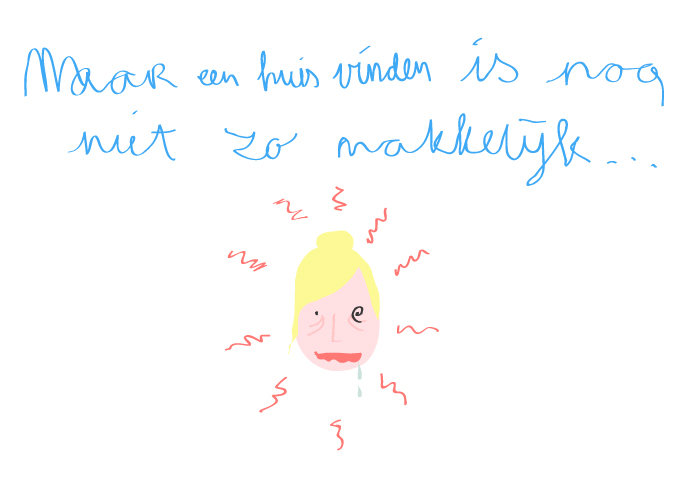 Maar een huis vinden is nog
niet zo makkelijk...